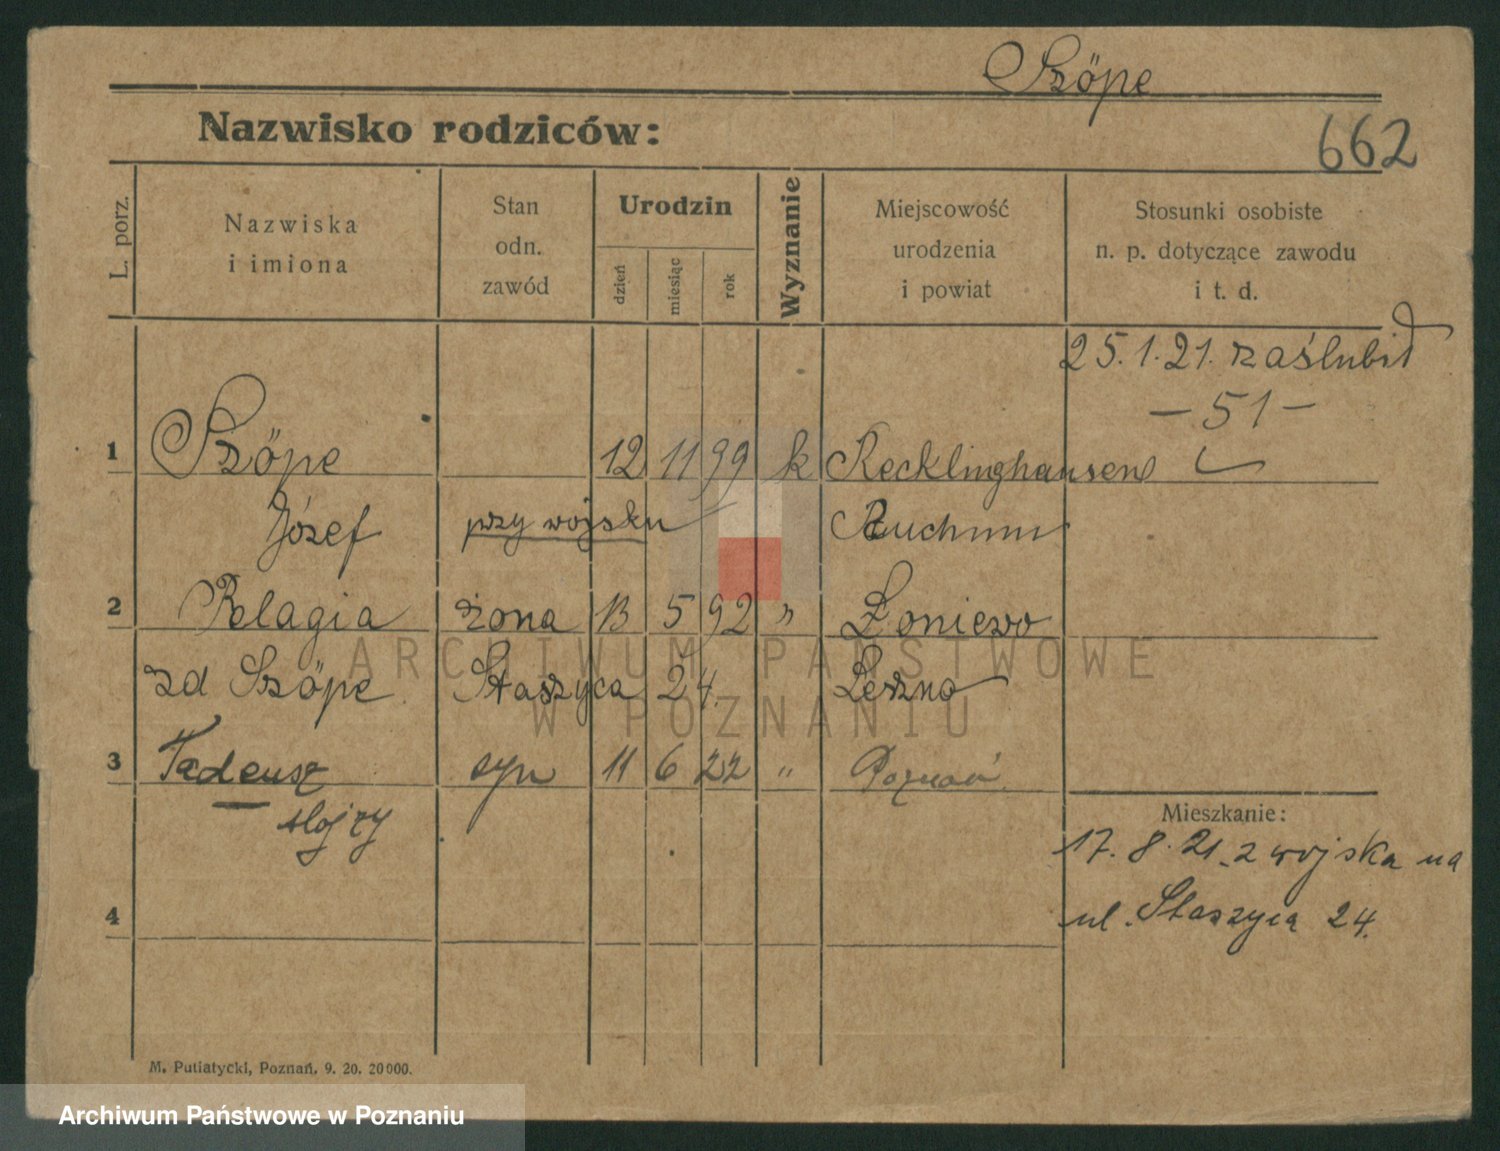 Szöpe
Nazwisko rodziców:
662
L. porz.
Nazwiska
i imiona
Stan
odn.
zawód
Urodzin
dzień
miesiąc
rok
Wyznanie
Miejscowość
urodzenia
i powiat
Stosunki osobiste
n. p. dotyczące zawodu
i t. d.
25.1.21. zaślubił
— 51 —
1 Szöpe 12 11 99 k Recklinghausen
Józef przy wojsku
2 Pelagia żona 13 5 92 " Łoniewo
zd Szöpe Staszyca 24.
3 Tadeusz syn 11 6 22 " Poznań
Alojzy
Mieszkanie:
17. 8. 21. z wojska na
ul. Staszyca 24.
4
M. Putiatycki, Poznań. 9. 20. 20000.
ARCHIWUM PAŃSTWOWE
W POZNANIU
Archiwum Państwowe w Poznaniu